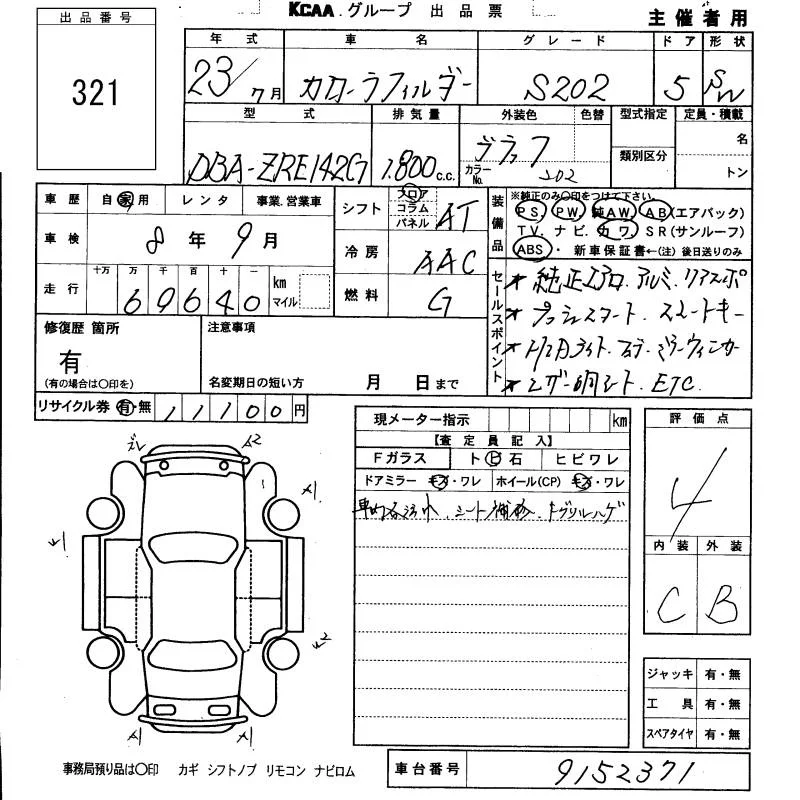 KCAA グループ 出品票
主催者用
出品番号
321
年式 車名 グレード ドア 形状
23/7月 カローラフィルダー S202 5 SW
型式 排気量 外装色 色替 型式指定 定員・積載
DBA-ZRE142G 1.800c.c. ブラック カラーNo. 202 類別区分 名 トン
車歴 自家用 レンタ 事業.営業車
車検 8年9月
走行 十万 万 千 百 十 一
69640 km マイル
シフト フロア コラム パネル AT
冷房 AAC
燃料 G
装備品 ※純正のみ〇印をつけて下さい。
PS. PW. 純AW. AB(エアバック)
TV. ナビ. カワ. SR(サンルーフ)
ABS・新車保証書←(注)後日送りのみ
セールスポイント
★純正エアロ.アルミ.リアスポ
★プッシュスタート.スマートキー
★HIDライト.ステリ.ミラーウィンカー
★レザー調シート.ETC.
修復歴 箇所
有
(有の場合は〇印を)
注意事項
名変期日の短い方 月 日まで
リサイクル券 有・無 11100円
現メーター指示 km
【査定員記入】
Fガラス ト ビ 石 ヒビワレ
ドアミラー キズ・ワレ ホイール(CP) キズ・ワレ
シート
評価点
4
内装 外装
C B
ジャッキ 有・無
工具 有・無
スペアタイヤ 有・無
A2
A1
A1
A1
事務局預り品は〇印 カギ シフトノブ リモコン ナビロム
車台番号 9152371